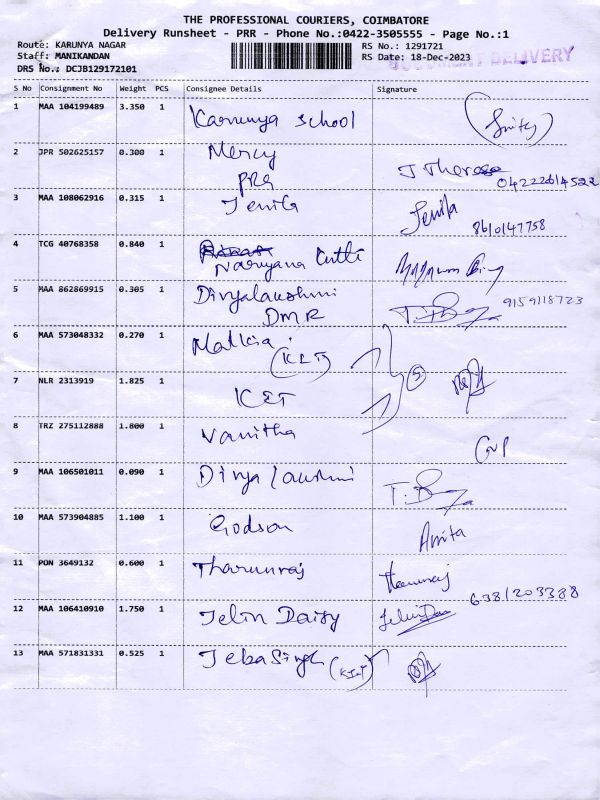 THE PROFESSIONAL COURIERS, COIMBATORE
Delivery Runsheet - PRR - Phone No.:0422-3505555 - Page No.:1
Route: KARUNYA NAGAR
RS No.: 1291721
Staff: MANIKANDAN
RS Date: 18-Dec-2023
DOCUMENT DELIVERY
DRS No.: DCJB129172101
S No Consignment No Weight PCS Consignee Details Signature
1 MAA 104199489 3.350 1 Karunya School
2 JPR 502625157 0.300 1 Mercy
PRG J Therese
04222614522
3 MAA 108062916 0.315 1 Jenita Jenita
8610147758
4 TCG 40768358 0.840 1
Narayana Cutti
5 MAA 862869915 0.305 1 Divyalakshmi
DMR 9159118723
6 MAA 573048332 0.270 1 Malkia
5
7 NLR 2313919 1.825 1
8 TRZ 275112888 1.800 1 Vanitha
9 MAA 106501011 0.090 1 Divya lakshmi
10 MAA 573904885 1.100 1 Godson Anita
11 PON 3649132 0.600 1 Tharunraj Tharunraj
6381203388
12 MAA 106410910 1.750 1 Jelin Daisy
13 MAA 571831331 0.525 1 Jeba Singh